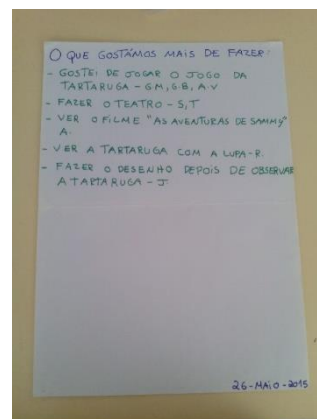 O QUE GOSTÁMOS MAIS DE FAZER:
- GOSTEI DE JOGAR O JOGO DA
TARTARUGA - G.M, G.B, A.V
- FAZER O TEATRO - S, T
- VER O FILME "AS AVENTURAS DE SAMMY"
A.
- VER A TARTARUGA COM A LUPA - R.
- FAZER O DESENHO DEPOIS DE OBSERVAR
A TARTARUGA - J
26-MAIO-2015